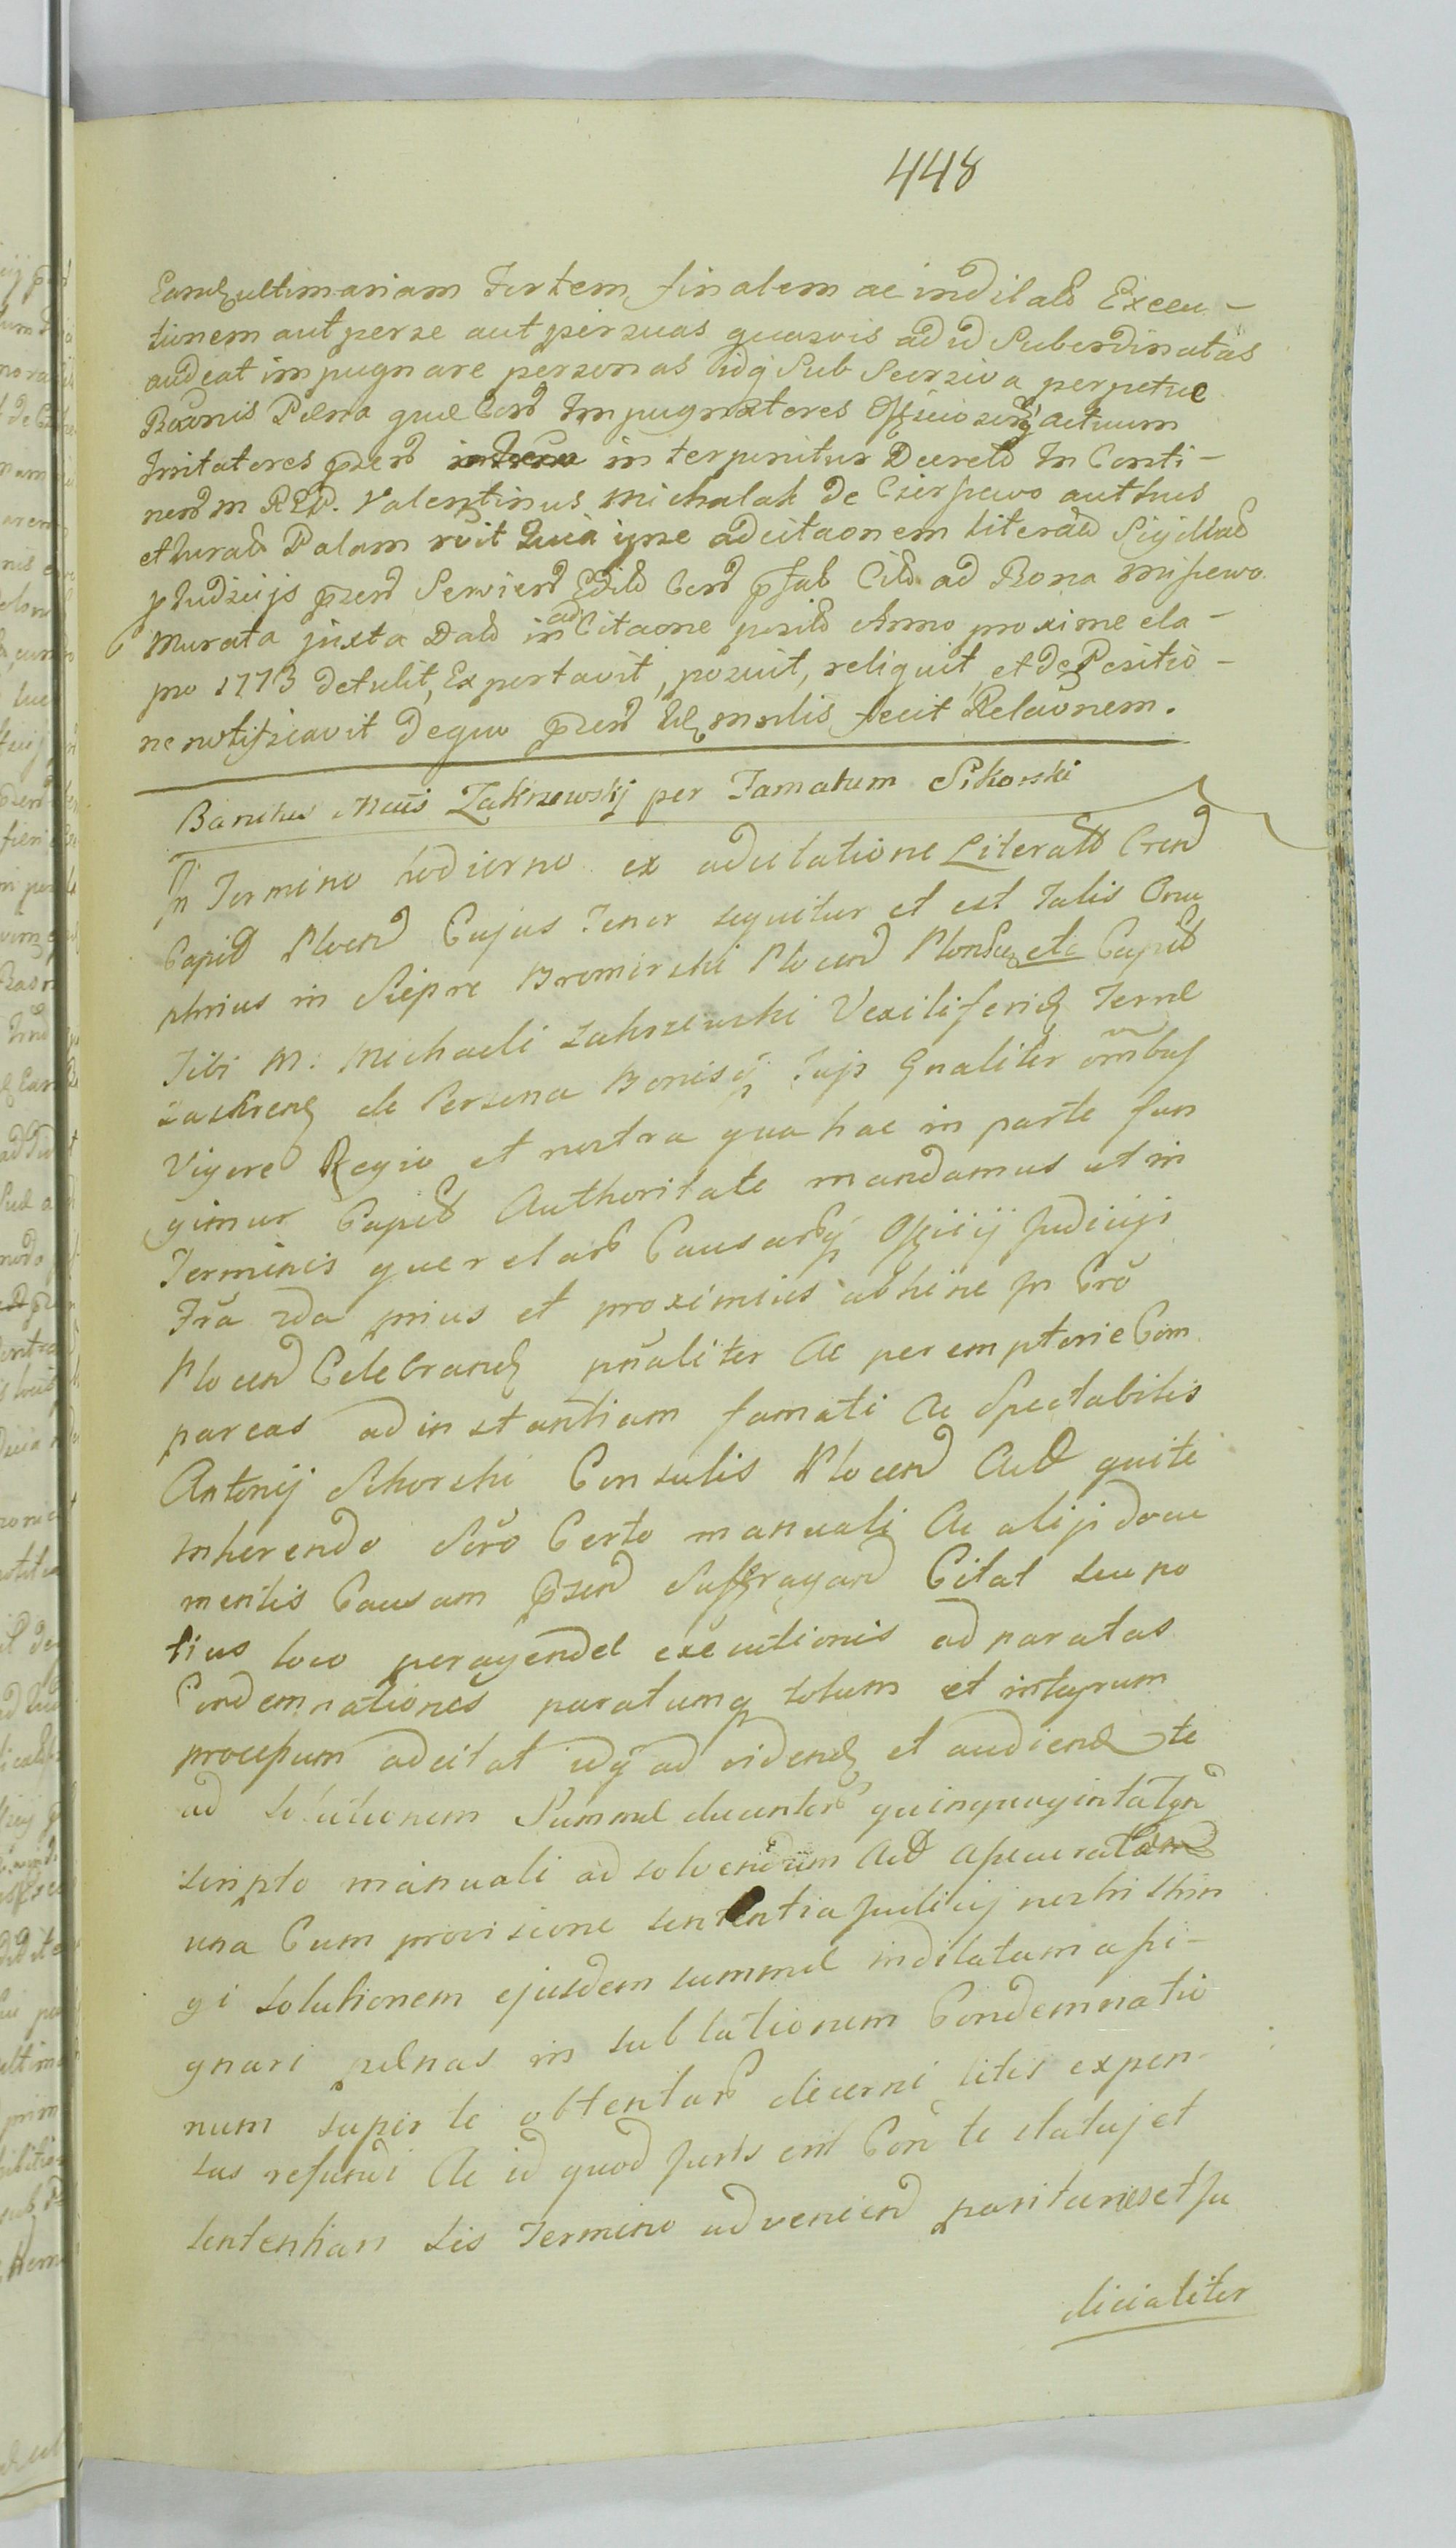 448
ultimariam Fortem finalem ac indilatd Execu-
tionem aut per se aut per suas quasvis ad id Subordinatas
audeat impugnare personas idq Sub Seorsiva perpetue
Bãonis Pœna quœ Impugnatores Officiosorq actuum
Irritatores pzend interponitur Decretd In Conti-
nend M REP. Valentinus Michalak de Cierpewo authus
et Jurats Palam rõit Quia ipse adcitaonem literatd Sigillatd
pzend Serviend ad Bona
Murata juxta Datd in ad Citaone positd Anno proxime ela-
pso 1773 detulit, Exportavit, posuit, reliquit, et de Positio-
ne notificavit de quo pzend fecit Relaõnem.
Banitus Mcus Zakrzewskij per Famatum Sikorski
In Termino hodierno ex adcitatione Literatt
Capitd Plocend Cujus Tenor sequitur et est Talis Onu
phrius in Siepre Bromirski Plocend etc Capitd
Tibi M: Michaeli Zakrzewski Vexiliferid Terrœ
de Persona Bonisq Tujs Gnaliter õmbus
Vigore Regio et nostra qua hac in parte fun
gimur Capitd Authoritate mandamus ut in
Terminis querelard Causarq Officij Judicijs
Fra 2da prius et proximius abhinc In Cro
Plocend Celebrand pnaliter Ac peremptorie Com
pareas ad instantiam famati Ac Spectabilis
Antonij Sikorski Consulis Plocend Actt qui te
inherendo Scro Certo manuali Ac alijs docu
mentis Causam pzend Suffragand Citat seu po
tius loco peragendœ executionis ad paratas
Condemnationes paratumq totum et integrum
processum adcitat idq ad vidend et audiend te
ad solutionem Summœ ducentor quinquaginta
scripto manuali ad solvendum Actt
una Cum provisione sententia Judicij nostri strin
gi solutionem ejusdem summœ indilatam assi-
gnari pœnas in sublationem Condemnatio
num super te obtentard decerni litis expen-
sas refundi Ac id quod juris erit Con te statuj et
sententiari sis Termino adveniend pariturus et Ju
dicialiter